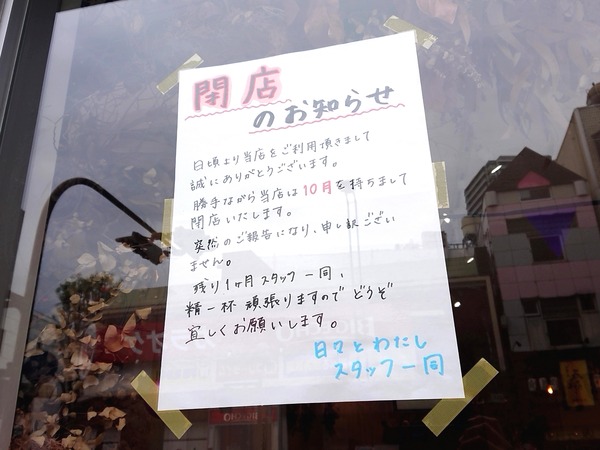 閉店
のお知らせ
日頃より当店をご利用頂きまして
誠にありがとうございます。
勝手ながら当店は10月を持ちまして
閉店いたします。
突然のご報告になり、申し訳ござい
ません。
残り1ヶ月スタッフ一同、
精一杯頑張りますのでどうぞ
宜しくお願いします。
日々とわたし
スタッフ一同